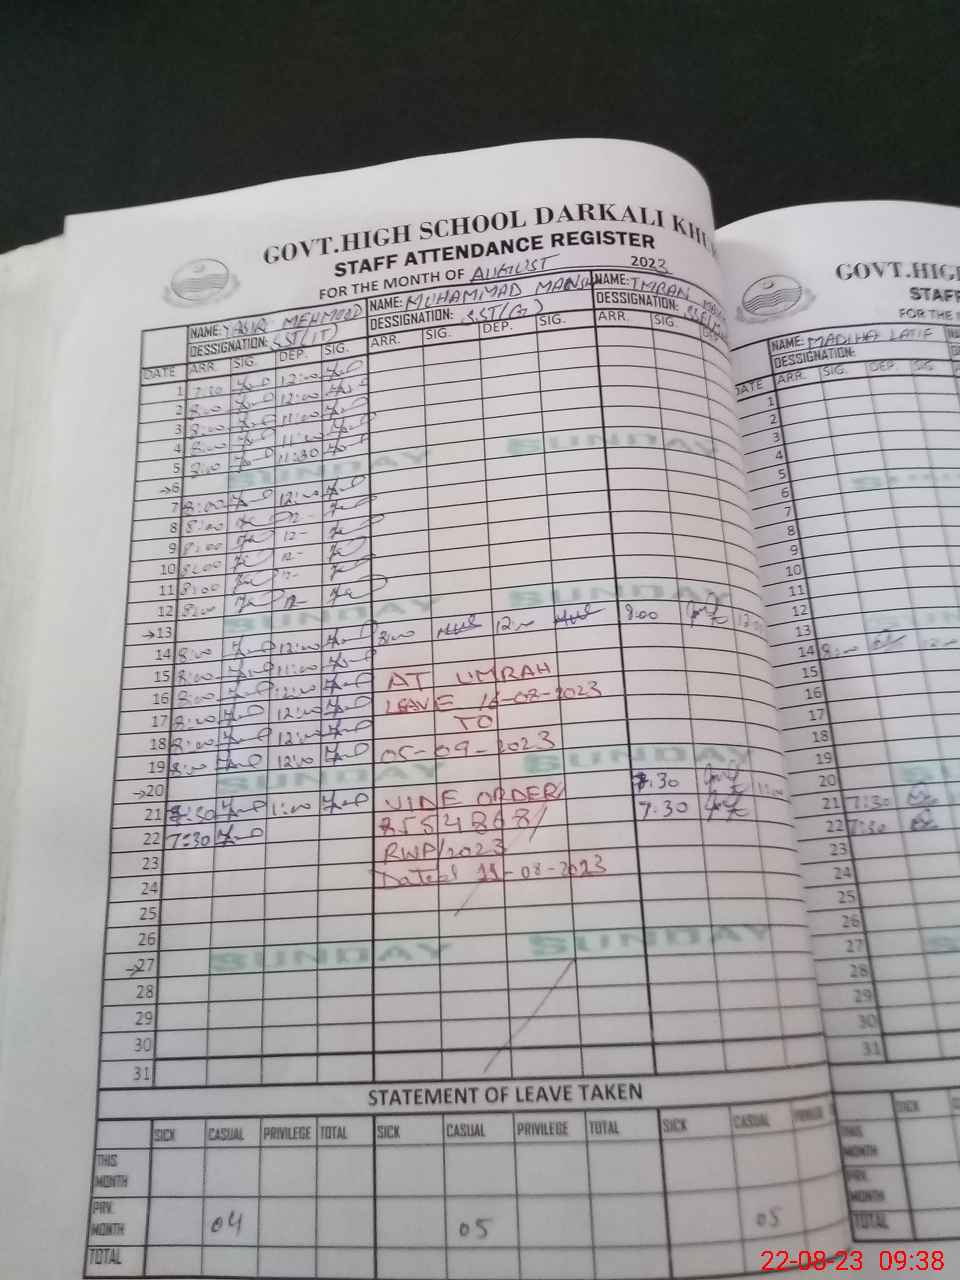 GOVT.HIGH SCHOOL DARKALI
STAFF ATTENDANCE REGISTER
FOR THE MONTH OF AUGUST 2023
NAME: YASIR MEHMOOD NAME: MUHAMMAD NAME: IMRAN
DESSIGNATION: SST(IT) DESSIGNATION: SST(G) DESSIGNATION:
DATE ARR. SIG. DEP. SIG. ARR. SIG. DEP. SIG. ARR. SIG. DEP
1 7:30 12:00
2 8:00 12:00
3 8:00 11:00
4 8:00
5 8:00 11:30
→6 SUNDAY SUNDAY
7 8:00 12:00
8 8:00 12-
9 8:00 12-
10 8:00 12-
11 8:00 12-
12 8:00 12-
→13 SUNDAY SUNDAY
14 8:00 12:00 8:00 12:00 8:00 12:00
15 8:00 11:00
16 8:00 12:00 AT UMRAH
17 8:00 12:00 LEAVE 16-08-2023
18 8:00 12:00 TO
19 8:00 12:00 05-09-2023
→20 SUNDAY SUNDAY
21 8:30 1:00 VIDE ORDER 7:30 11:00
22 7:30 8554868/ 7:30
23 RWP/2023
24 Dated 11-08-2023
25
26
→27 SUNDAY SUNDAY
28
29
30
31
STATEMENT OF LEAVE TAKEN
SICK CASUAL PRIVILEGE TOTAL SICK CASUAL PRIVILEGE TOTAL SICK CASUAL
THIS MONTH
PRV. MONTH 04 05 05
TOTAL
GOVT.HIG
STAFF
FOR THE
NAME: MADIHA LATIF
DESSIGNATION:
DATE ARR. SIG. DEP. SIG
1
2
3
4
5
6
7
8
9
10
11
12
13
14 8:00 12:00
15
16
17
18
19
20
21 7:30
22 7:30
23
24
25
26
27
28
29
30
31
SICK
THIS MONTH
PRV. MONTH
TOTAL
22-08-23 09:38